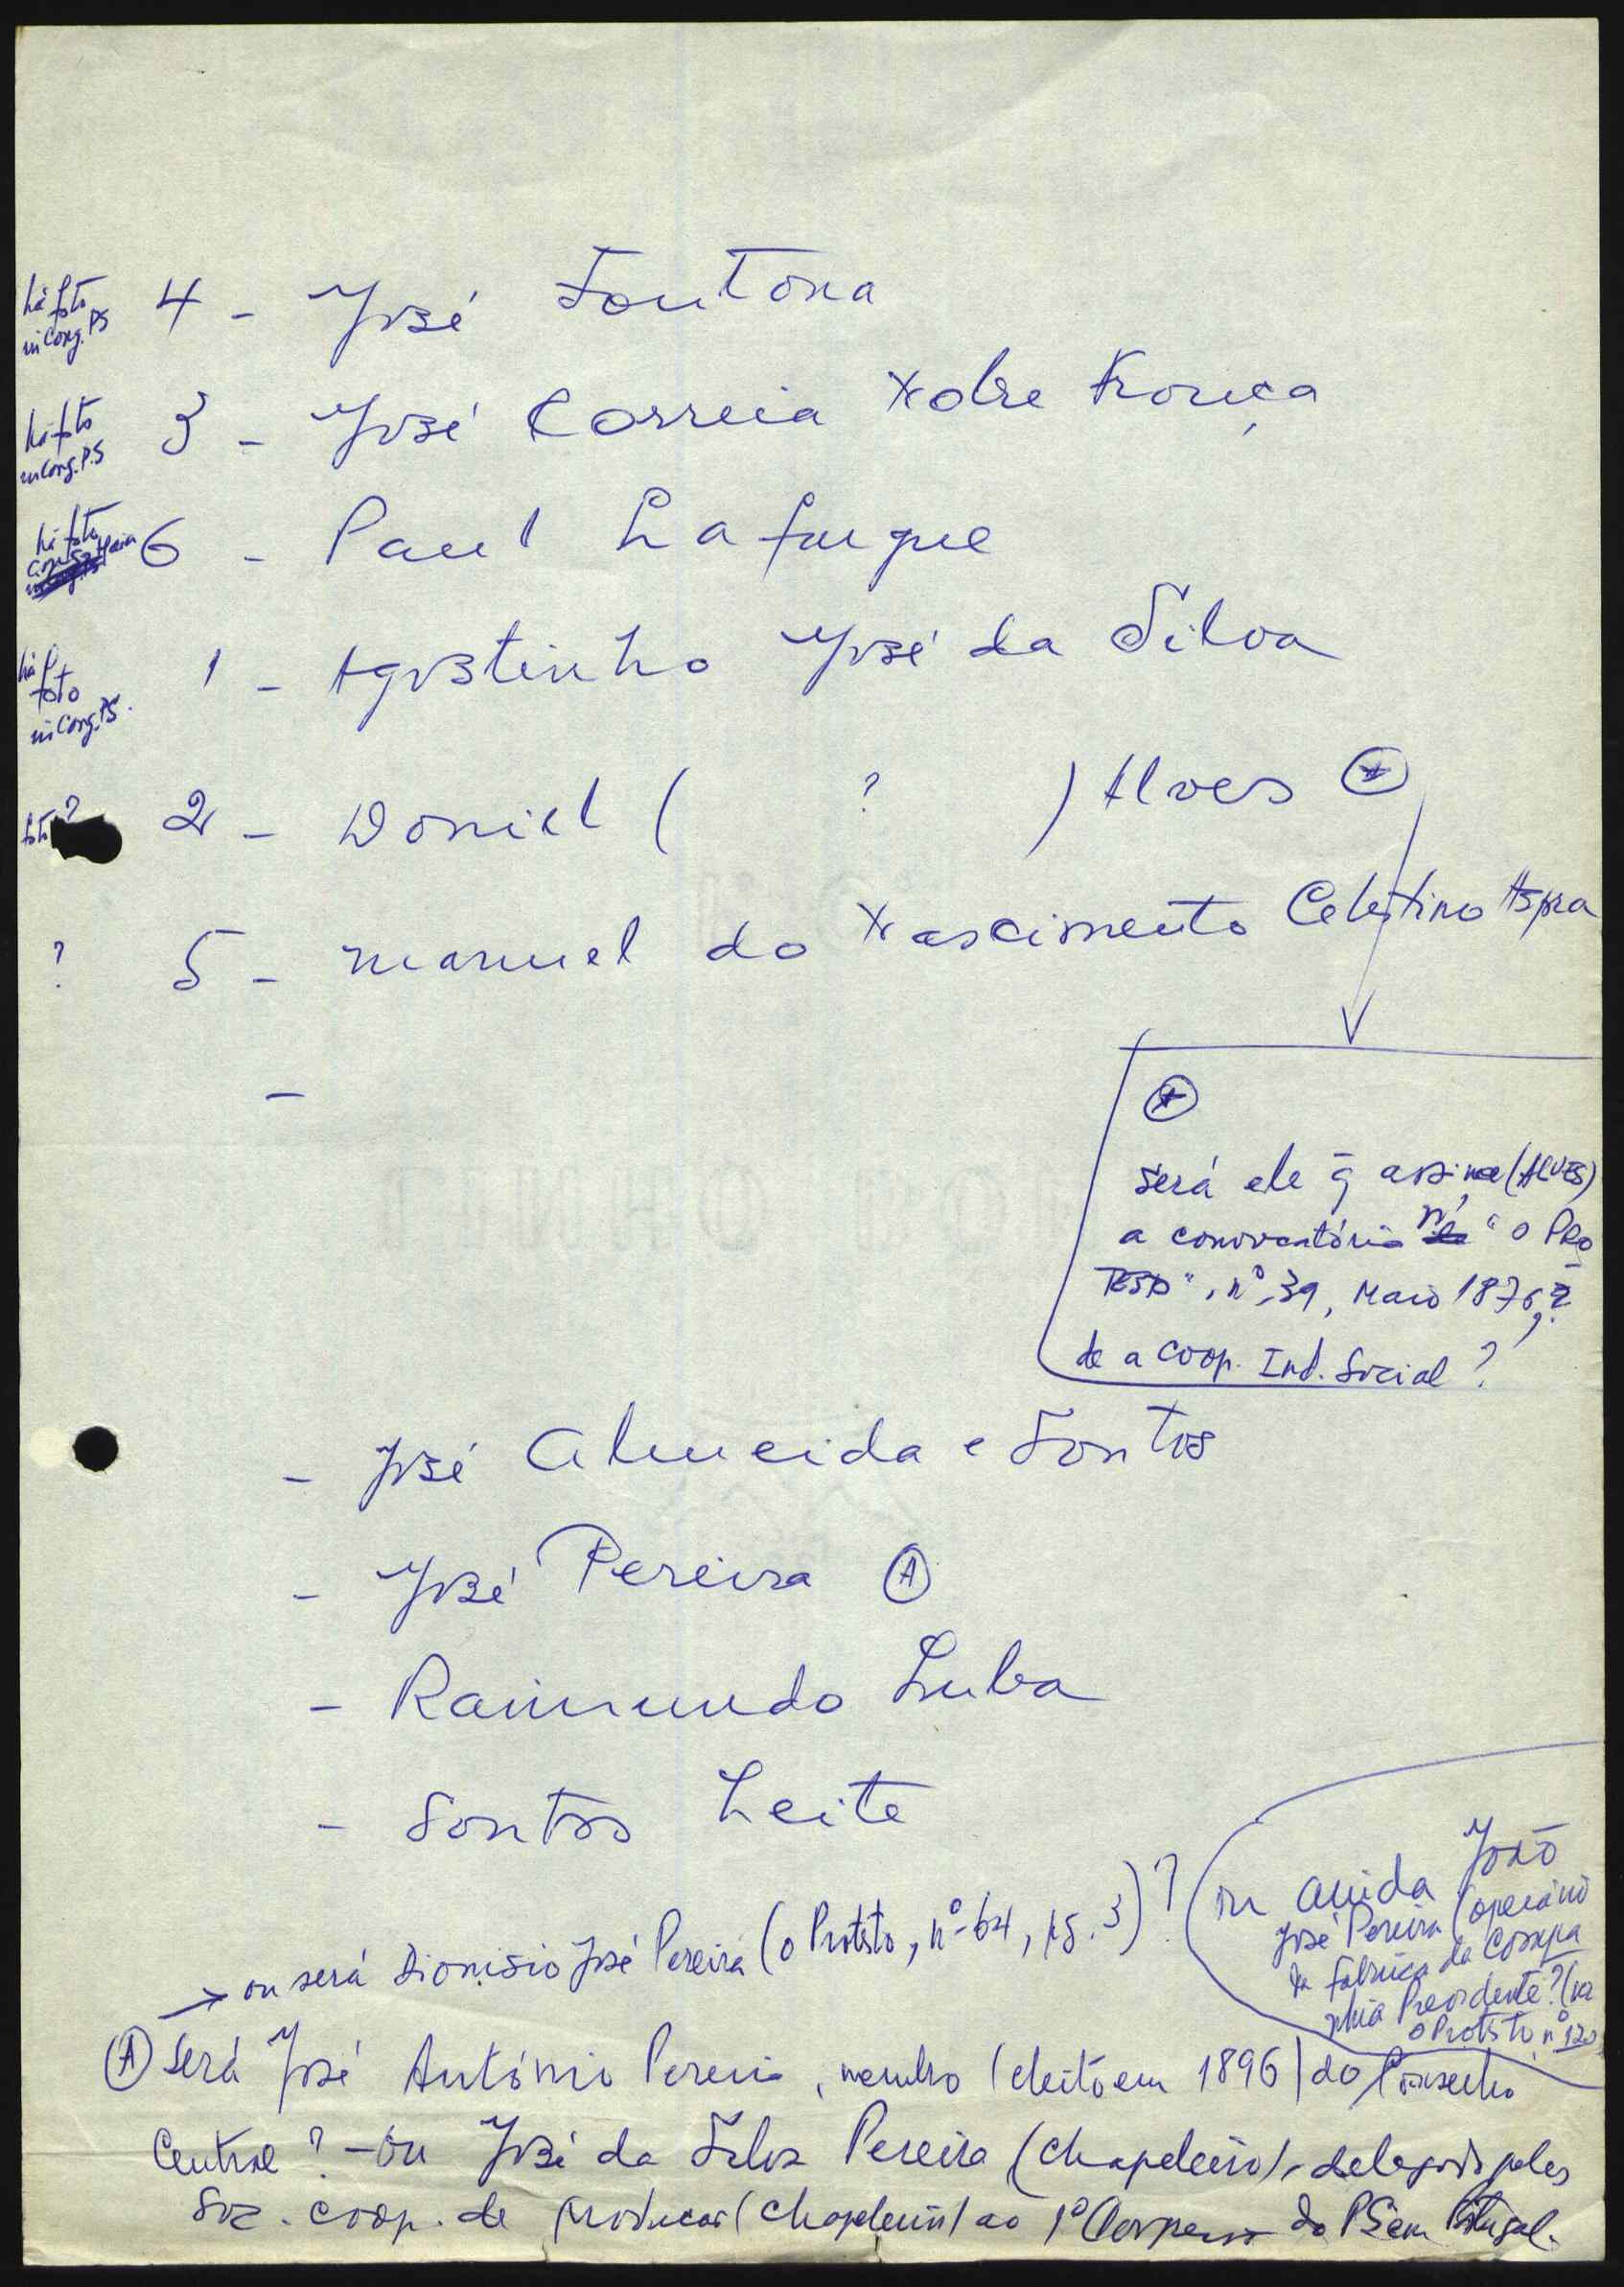 há foto
in Cong. PS
4 - José Fontana
há foto
in Cong. P.S
3 - José Correia Nobre França
há foto
6 - Paul Lafargue
há foto
in Cong. PS.
1 - Agostinho José da Silva
foto ?
2 - Daniel ( ? ) Alves *
?
5 - Manuel do Nascimento Celestino Aspra
-
*
será ele q̄ assina (ALVES)
a convocatória n' "O PRO
TESTO", nº 39, Maio 1876,
de a Coop. Ind. Social ?
- José Almeida e Santos
- José Pereira (A)
- Raimundo Luba
- Santos Leite
→ ou será Dionisio José Pereira (O Protesto, nº 64, pg. 3) ?
(ou ainda João
José Pereira (operário
da fabrica da Compa
nhia Previdente ? (in
O Protesto, nº 120
(A) Será José António Pereira, membro (eleito em 1896) do Conselho
Central ? - ou José da Silva Pereira (Chapeleiro), delegado pelas
Soc. coop. de producao (Chapeleiros) ao 1º Congresso do PS em Portugal.